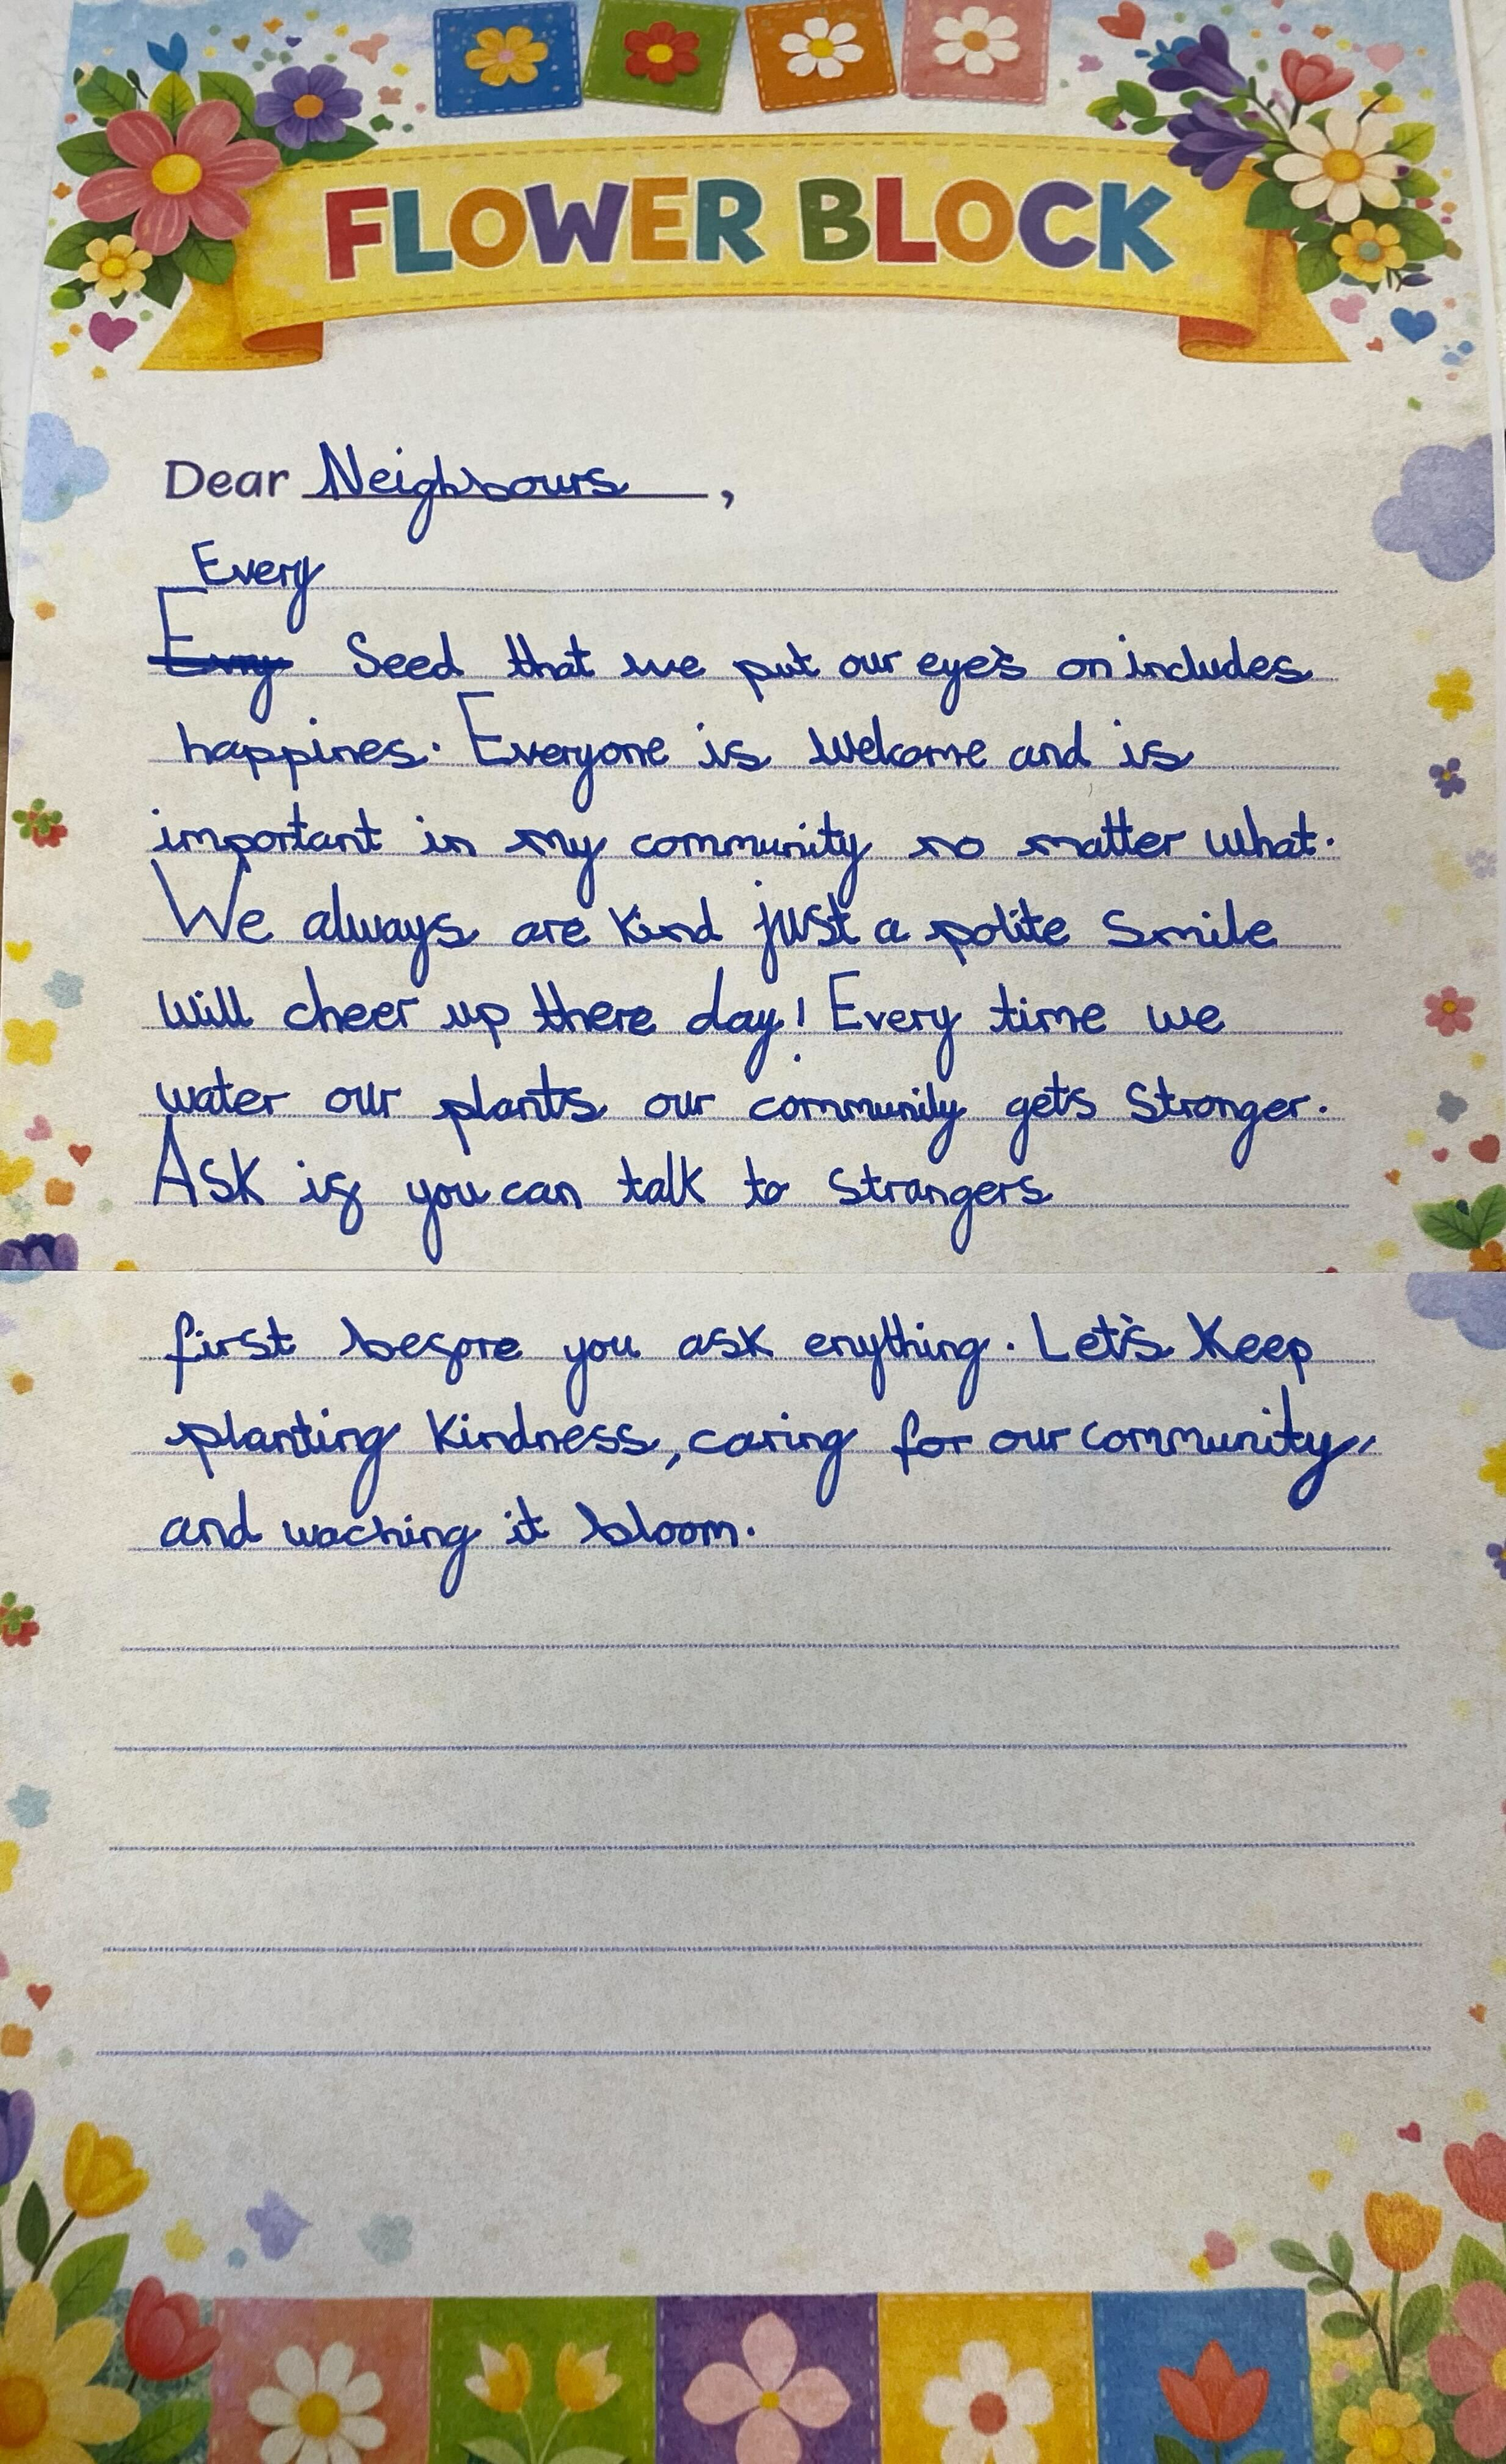 FLOWER BLOCK
Dear Neighbours,
Every
Evry Seed that we put our eye's on includes
happines. Everyone is Welcome and is
important in my community no matter what.
We always are kind just a polite Smile
will cheer up there day! Every time we
water our plants our community gets Stronger.
Ask if you can talk to strangers
first before you ask enything. Let's Keep
planting Kindness, caring for our community,
and waching it bloom.